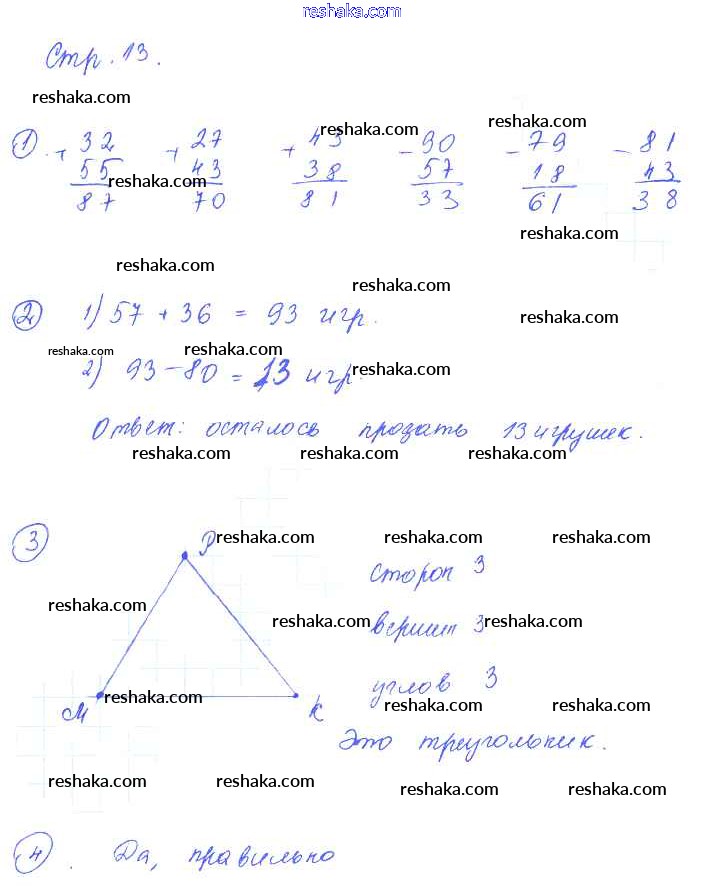 reshaka.com
Стр. 13.
reshaka.com
reshaka.com reshaka.com
1 + 32 + 27 + 43 - 90 - 79 - 81
55 43 38 57 18 43
reshaka.com
87 70 81 33 61 38
reshaka.com
reshaka.com reshaka.com
2 1) 57 + 36 = 93 игр.
reshaka.com
reshaka.com reshaka.com reshaka.com
2) 93 - 80 = 13 игр.
Ответ: осталось продать 13 игрушек.
reshaka.com reshaka.com reshaka.com
3 P
reshaka.com reshaka.com reshaka.com
сторон 3
reshaka.com
вершин 3
reshaka.com reshaka.com
углов 3
reshaka.com
М К
reshaka.com reshaka.com
Это треугольник.
reshaka.com reshaka.com reshaka.com reshaka.com
4. Да, правильно